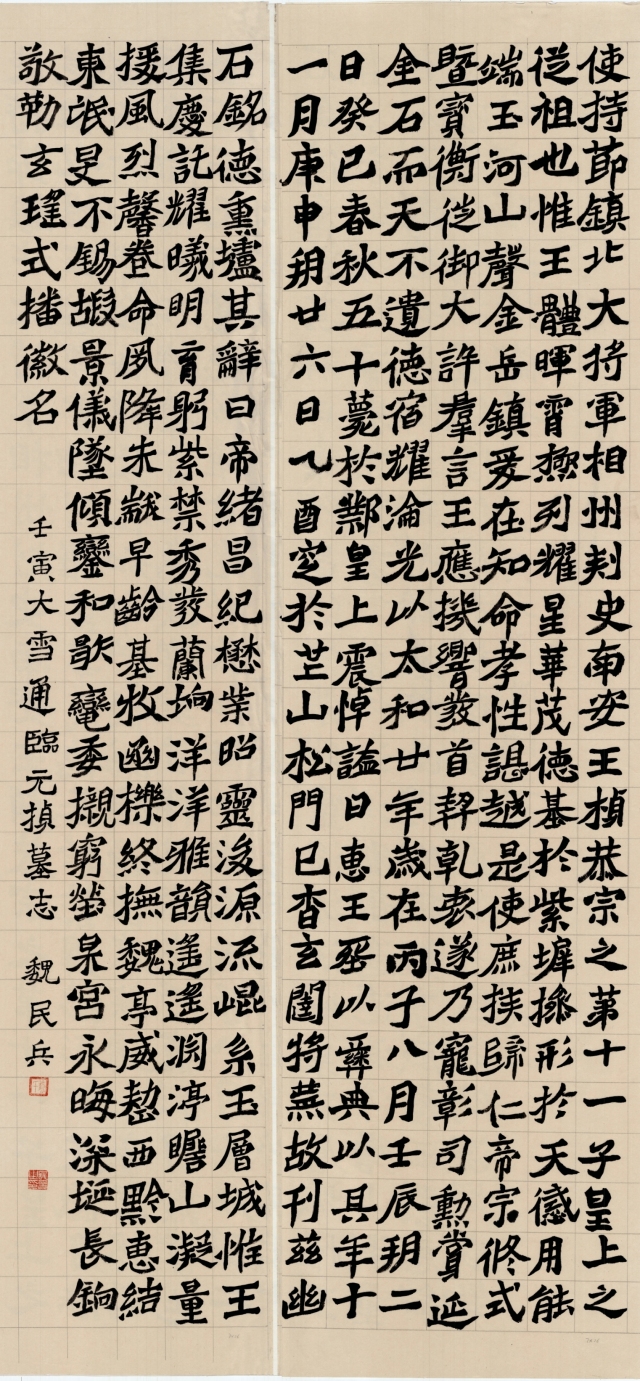 使持節鎮北大將軍相州刾史南安王楨恭宗之第十一子皇上之
從祖也惟王體暉霄極列耀星華茂德基於紫墀操形於天感用能
端玉河山聲金岳鎮爰在知命孝性諶越是使庶族歸仁帝宗攸式
暨寶衡徙御大許羣言王應機響發首契乾衷遂乃寵彰司勳賞延
金石而天不遺德宿耀淪光以太和廿年歲在丙子八月壬辰朔二
日癸巳春秋五十薨於鄴皇上震悼謚曰惠王葬以彝典以其年十
一月庚申朔廿六日乙酉窆於芒山松門已杳玄闥將蕪故刊茲幽
石銘德熏壚其辭曰帝緒昌紀懋業昭靈浚源流崐系玉層城惟王
集慶託耀曦明育躬紫禁秀發蘭坰洋洋雅韻遙遙淵渟瞻山凝量
援風烈馨卷命夙降未黻早齡基牧函櫟終撫魏亭威整西黔惠結
東氓旻不錫嘏景儀墜傾鑾和歇委櫬窮塋泉宮永晦深埏長
敬勒玄瑤式播徽名
壬寅大雪通臨元楨墓志 魏民兵